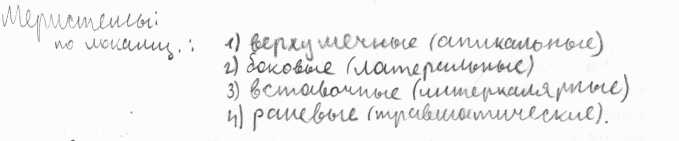 Меристемы:
по локализ.: 1) верхушечные (апикальные)
2) боковые (латеральные)
3) вставочные (интеркалярные)
4) раневые (травматические).